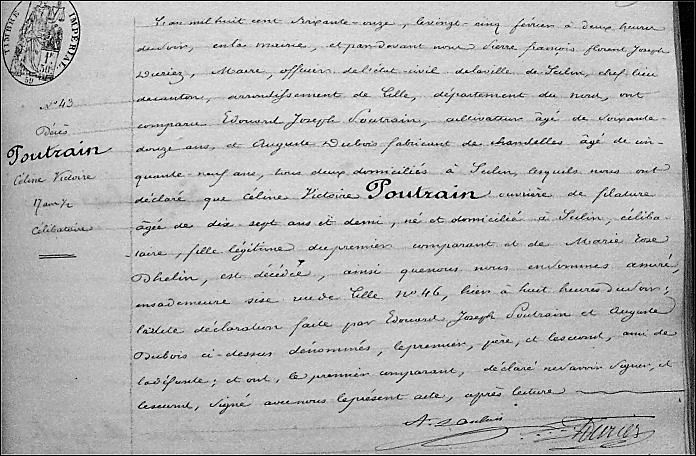 TIMBRE IMPÉRIAL
L'an mil huit cent soixante-onze, le vingt-cinq février à deux heures
du soir, en la mairie, et par-devant nous Pierre françois florent Joseph
Duriez, Maire, officier de l'état-civil de la ville de Seclin, chef lieu
de canton, arrondissement de Lille, département du nord, ont
comparu Edouard Joseph Poutrain, cultivateur âgé de soixante-
douze ans, et Auguste Dubois fabricant de chandelles âgé de cin-
quante-neuf ans, tous deux domiciliés à Seclin, lesquels nous ont
déclaré que Céline Victoire Poutrain ouvrière de filature
âgée de dix sept ans et demi, né et domicilié à Seclin, céliba-
taire, fille légitime du premier comparant et de Marie Rose
Dhelin, est décédée, ainsi que nous nous en sommes assuré,
en sa demeure sise rue de Lille N° 46, hier à huit heures du soir;
la dite déclaration faite par Edouard Joseph Poutrain et Auguste
Dubois ci-dessus dénommés, le premier, père, et le second, ami de
la défunte; et ont, le premier comparant, déclaré ne savoir signer, et
le second, signé avec nous le présent acte, après lecture
N° 43
Décès
Poutrain
Céline Victoire
17 ans 1/2
Célibataire
Duriez